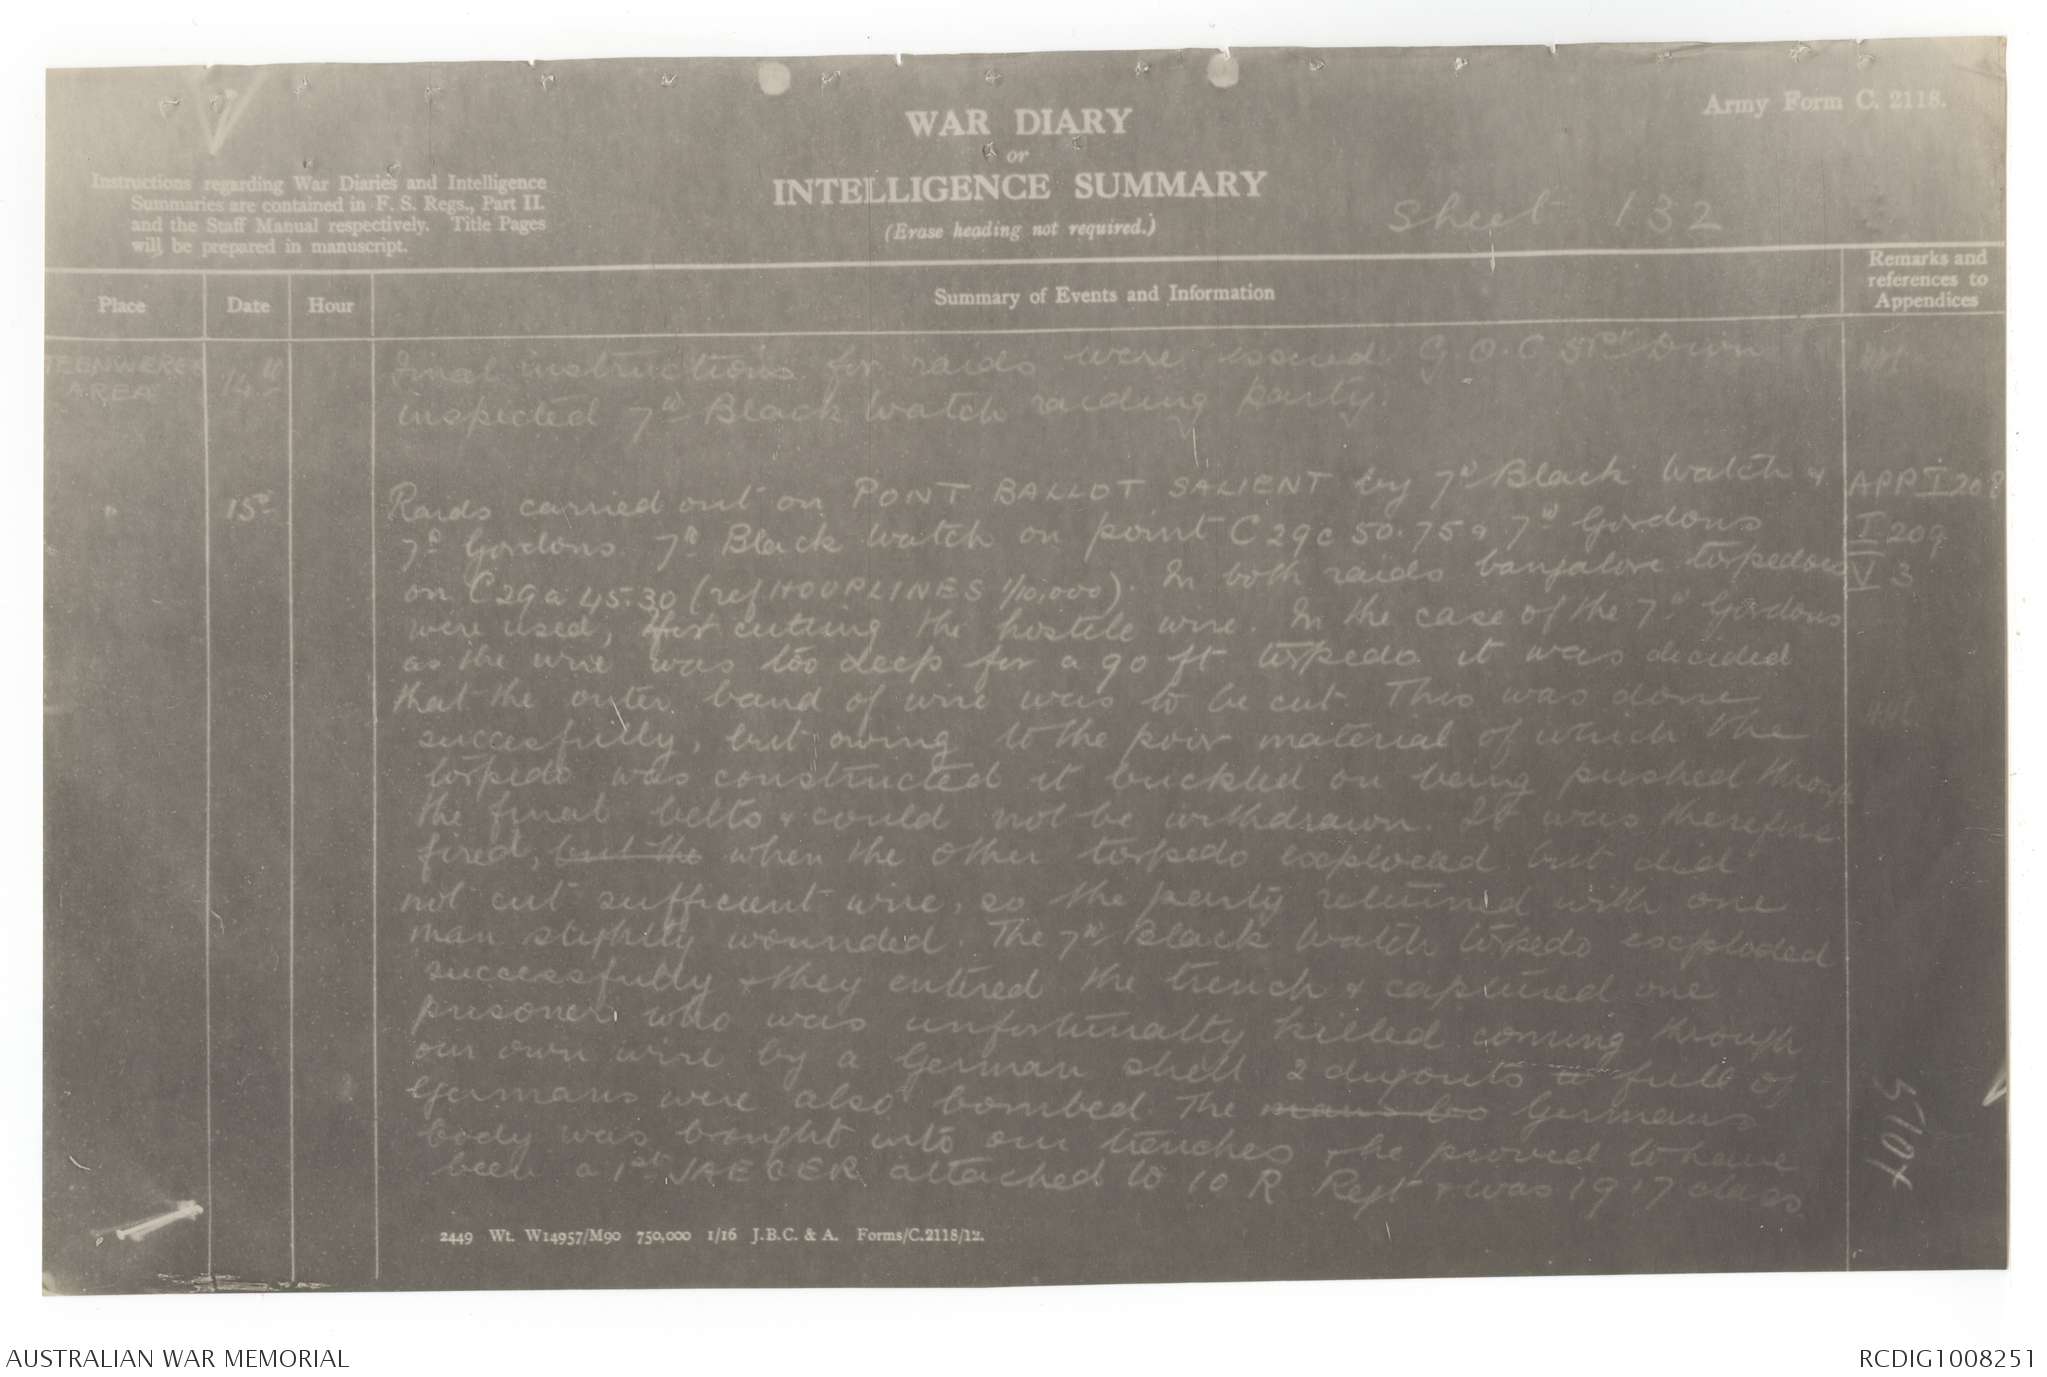 Army Form C. 2118.
WAR DIARY
or
INTELLIGENCE SUMMARY
(Erase heading not required.)
Instructions regarding War Diaries and Intelligence
Summaries are contained in F. S. Regs., Part II.
and the Staff Manual respectively. Title Pages
will be prepared in manuscript.
Sheet 132
Place Date Hour Summary of Events and Information Remarks and
references to
Appendices
TEENWERCK
AREA
14th Final instructions for raids were issued G.O.C 51st Divn
inspected 7th Black Watch raiding party.
" 15th Raids carried out on PONT BALLOT SALIENT by 7th Black Watch & APP I 208
7th Gordons. 7th Black Watch on point C29c 50.75 & 7th Gordons I 209
on C29a 45.30 (ref HOUPLINES 1/10,000). In both raids bangalore torpedoes V 3
were used, for cutting the hostile wire. In the case of the 7th Gordons
as the wire was too deep for a 90 ft torpedo it was decided
that the outer band of wire was to be cut. This was done
succesfully, but owing to the poor material of which the
torpedo was constructed it buckled on being pushed through
the final belts & could not be withdrawn. It was therefore
fired, but the when the other torpedo exploded but did
not cut sufficient wire, so the party returned with one
man slightly wounded. The 7th Black Watch torpedo exploded
successfully & they entered the trench & captured one
prisoner who was unfortunatly killed coming through
our own wire by a German shell 2 dugouts full of
Germans were also bombed The Germans
body was brought into our trenches & he proved to have
been a 1st JAEGER attached to 10 R Regt & was 1917 class.
5704
2449 Wt. W14957/M90 750,000 1/16 J.B.C. & A. Forms/C.2118/12.
AUSTRALIAN WAR MEMORIAL
RCDIG1008251